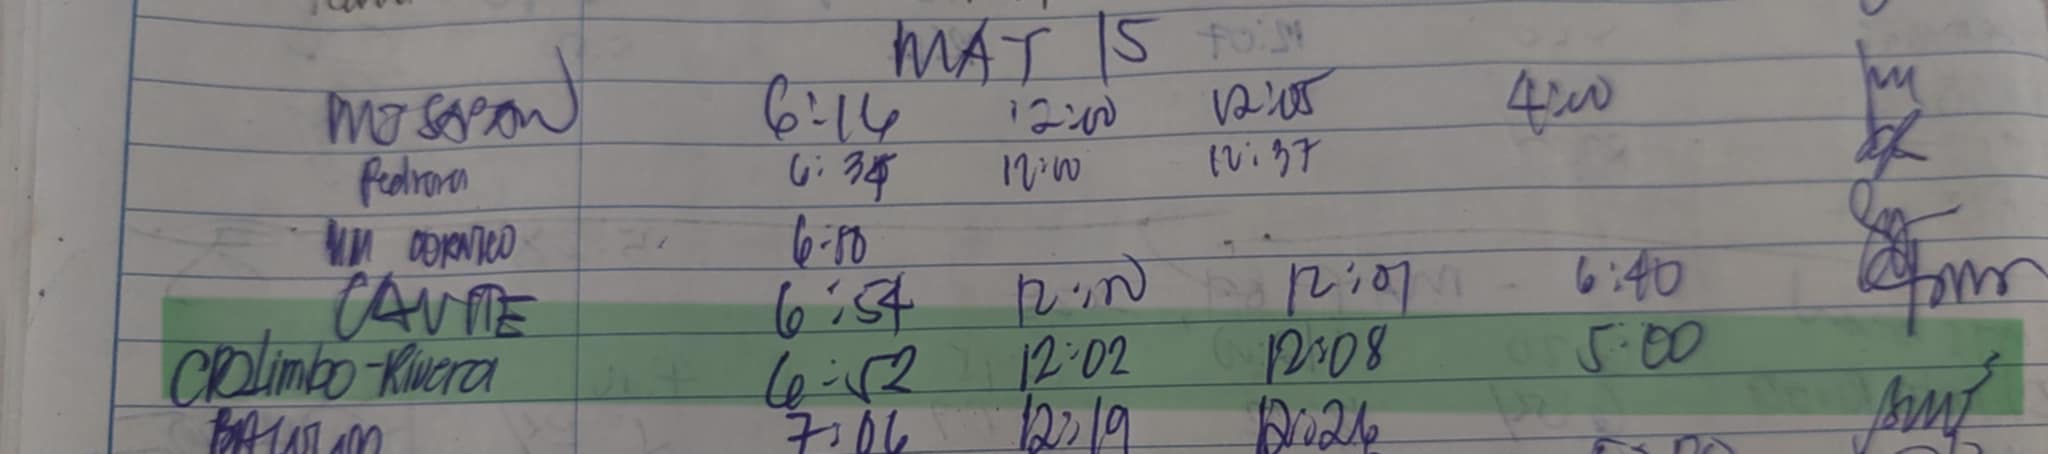 MAT 15
6:14 12:00 12:05 4:00
Pedrora 6:34 12:00 12:37
6:50
CAVITE 6:54 12:00 12:07 6:40
CDLimbo-Rivera 6:52 12:02 12:08 5:00
7:06 12:19 12:26